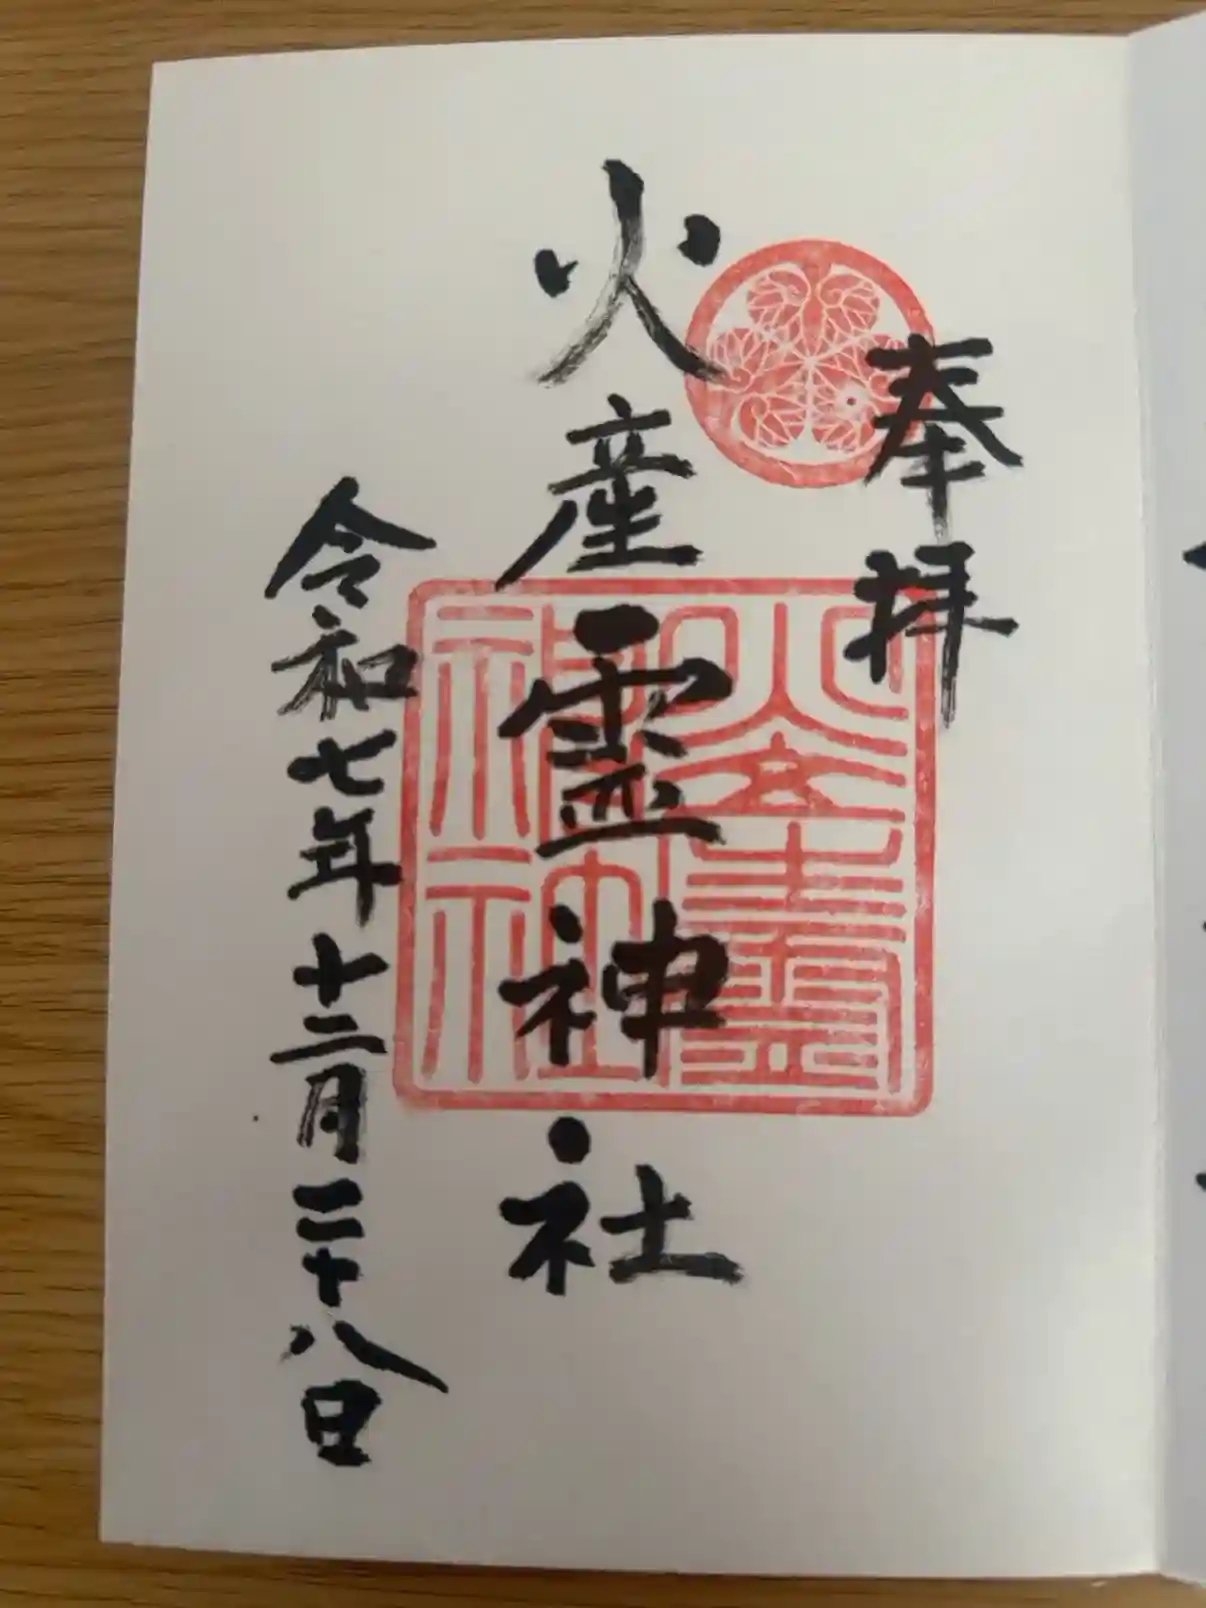 奉拝
火産霊神社
令和七年十二月二十八日
火産霊
神社